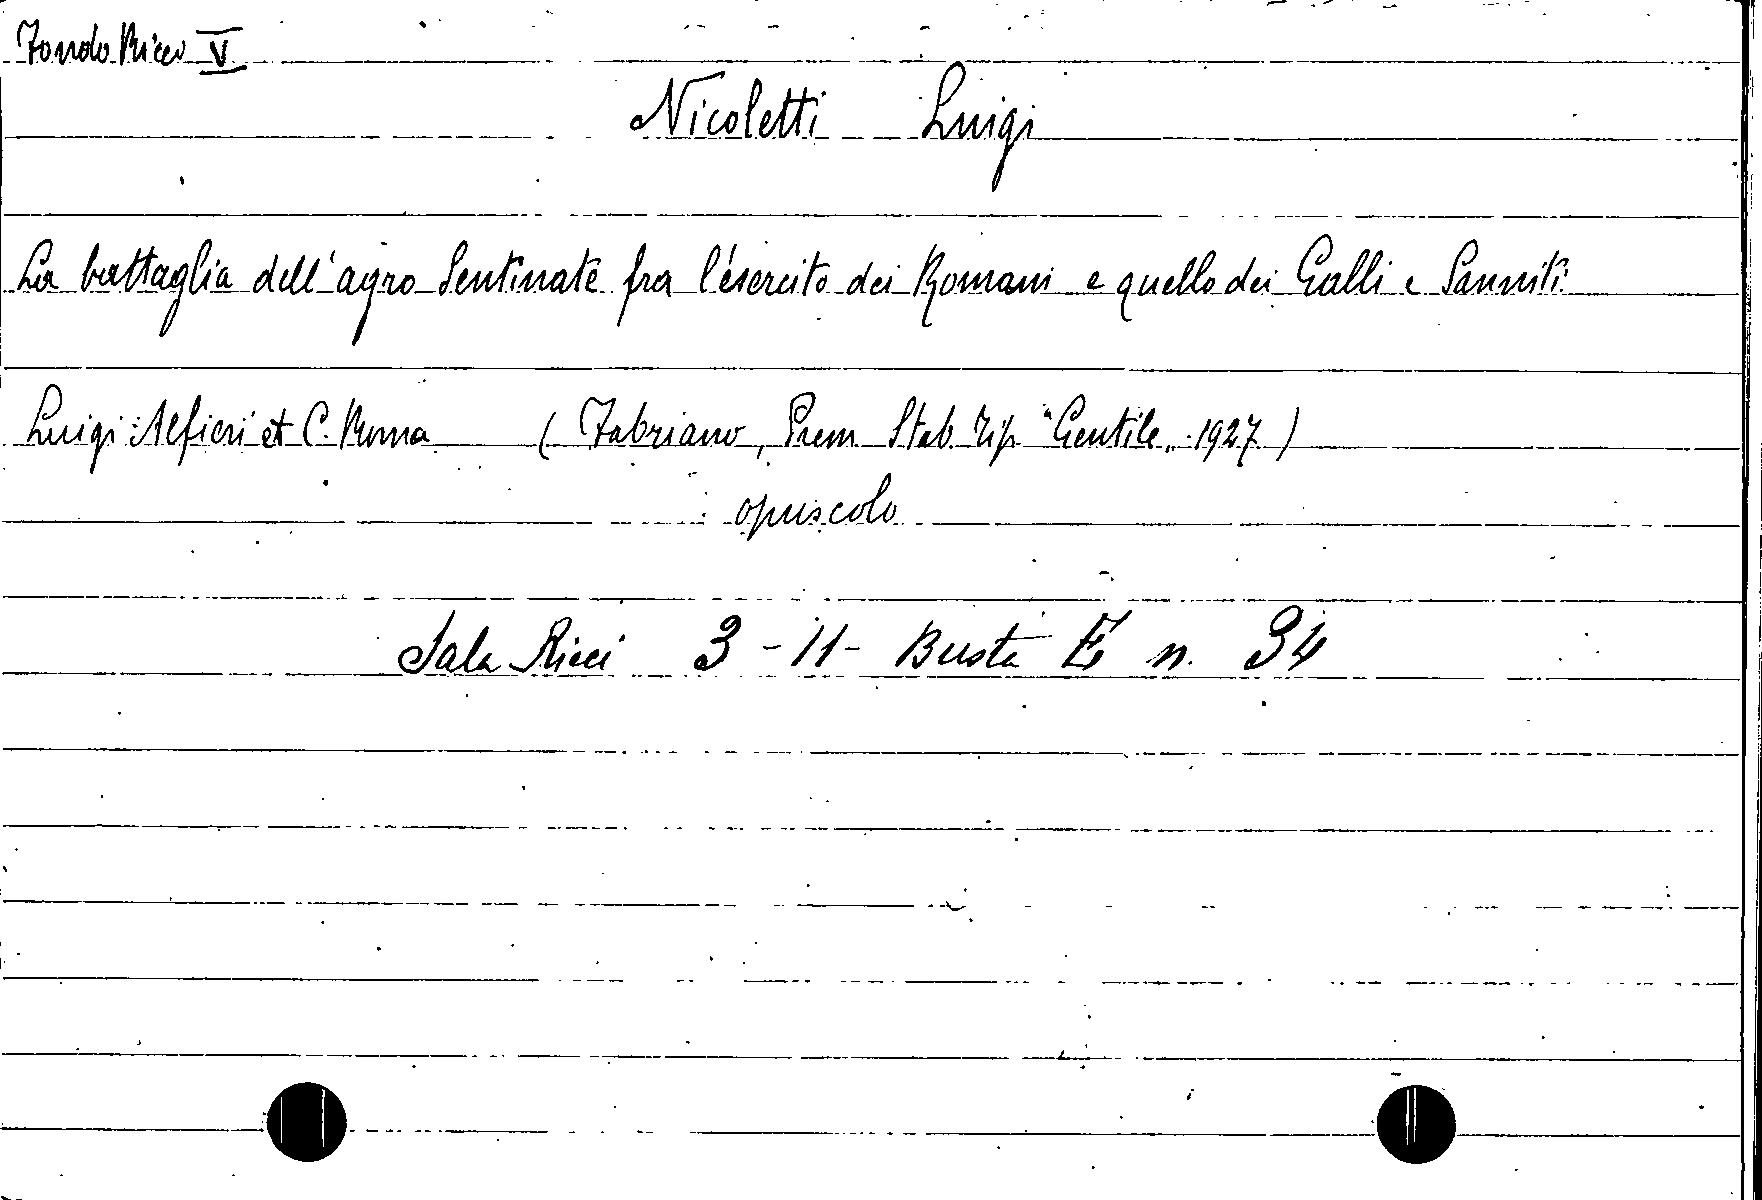 Fondo Ricci V
Nicoletti Luigi
La battaglia dell'agro Sentinate fra l'esercito dei Romani e quello dei Galli e Sanniti
Luigi Alfieri et C. Roma ( Fabriano, Prem. Stab. Tip. "Gentile" 1927 )
opuscolo
Sala Ricci 3 - 11 - Busta E n. 34